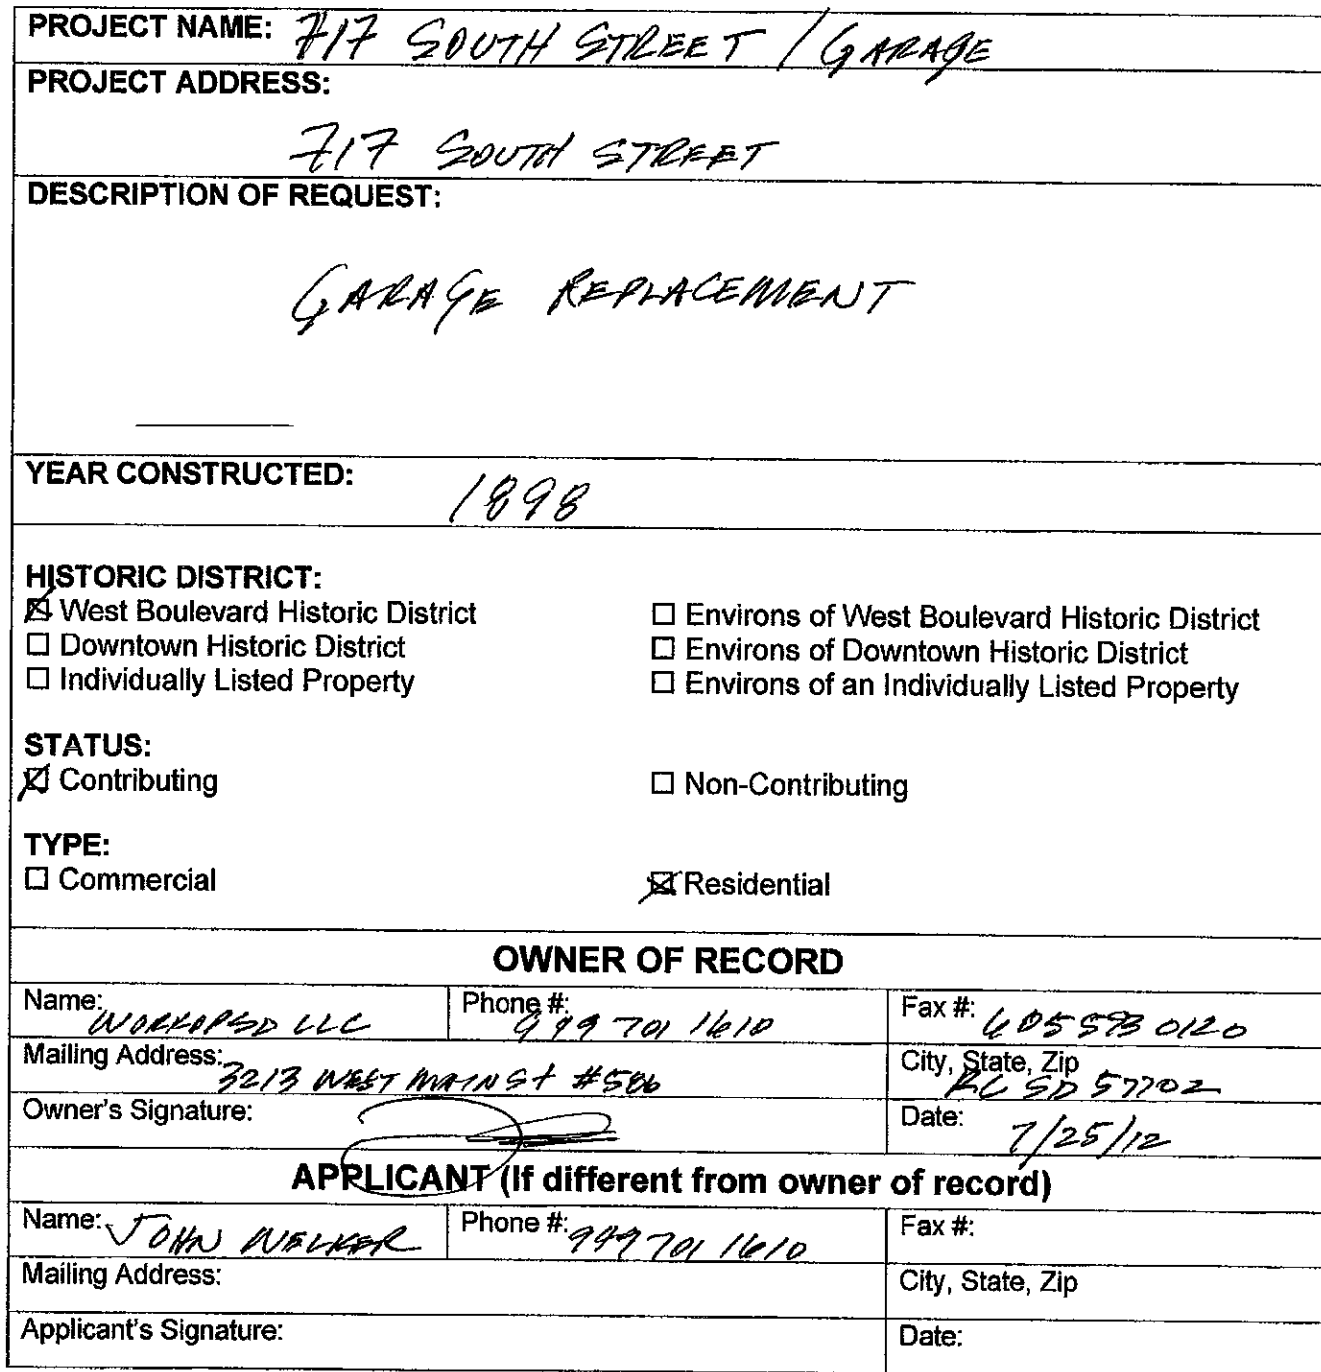 PROJECT NAME: 717 SOUTH STREET / GARAGE
PROJECT ADDRESS:
717 SOUTH STREET
DESCRIPTION OF REQUEST:
GARAGE REPLACEMENT
YEAR CONSTRUCTED: 1898
HISTORIC DISTRICT:
☒ West Boulevard Historic District ☐ Environs of West Boulevard Historic District
☐ Downtown Historic District ☐ Environs of Downtown Historic District
☐ Individually Listed Property ☐ Environs of an Individually Listed Property
STATUS:
☒ Contributing ☐ Non-Contributing
TYPE:
☐ Commercial ☒ Residential
OWNER OF RECORD
Name: LLC Phone #: 949 701 1610 Fax #: 605 593 0120
Mailing Address: 3213 WEST MAIN St #586 City, State, Zip RC SD 57702
Owner's Signature: Date: 7/25/12
APPLICANT (If different from owner of record)
Name: JOHN WELKER Phone #: 949 701 1610 Fax #:
Mailing Address: City, State, Zip
Applicant's Signature: Date: